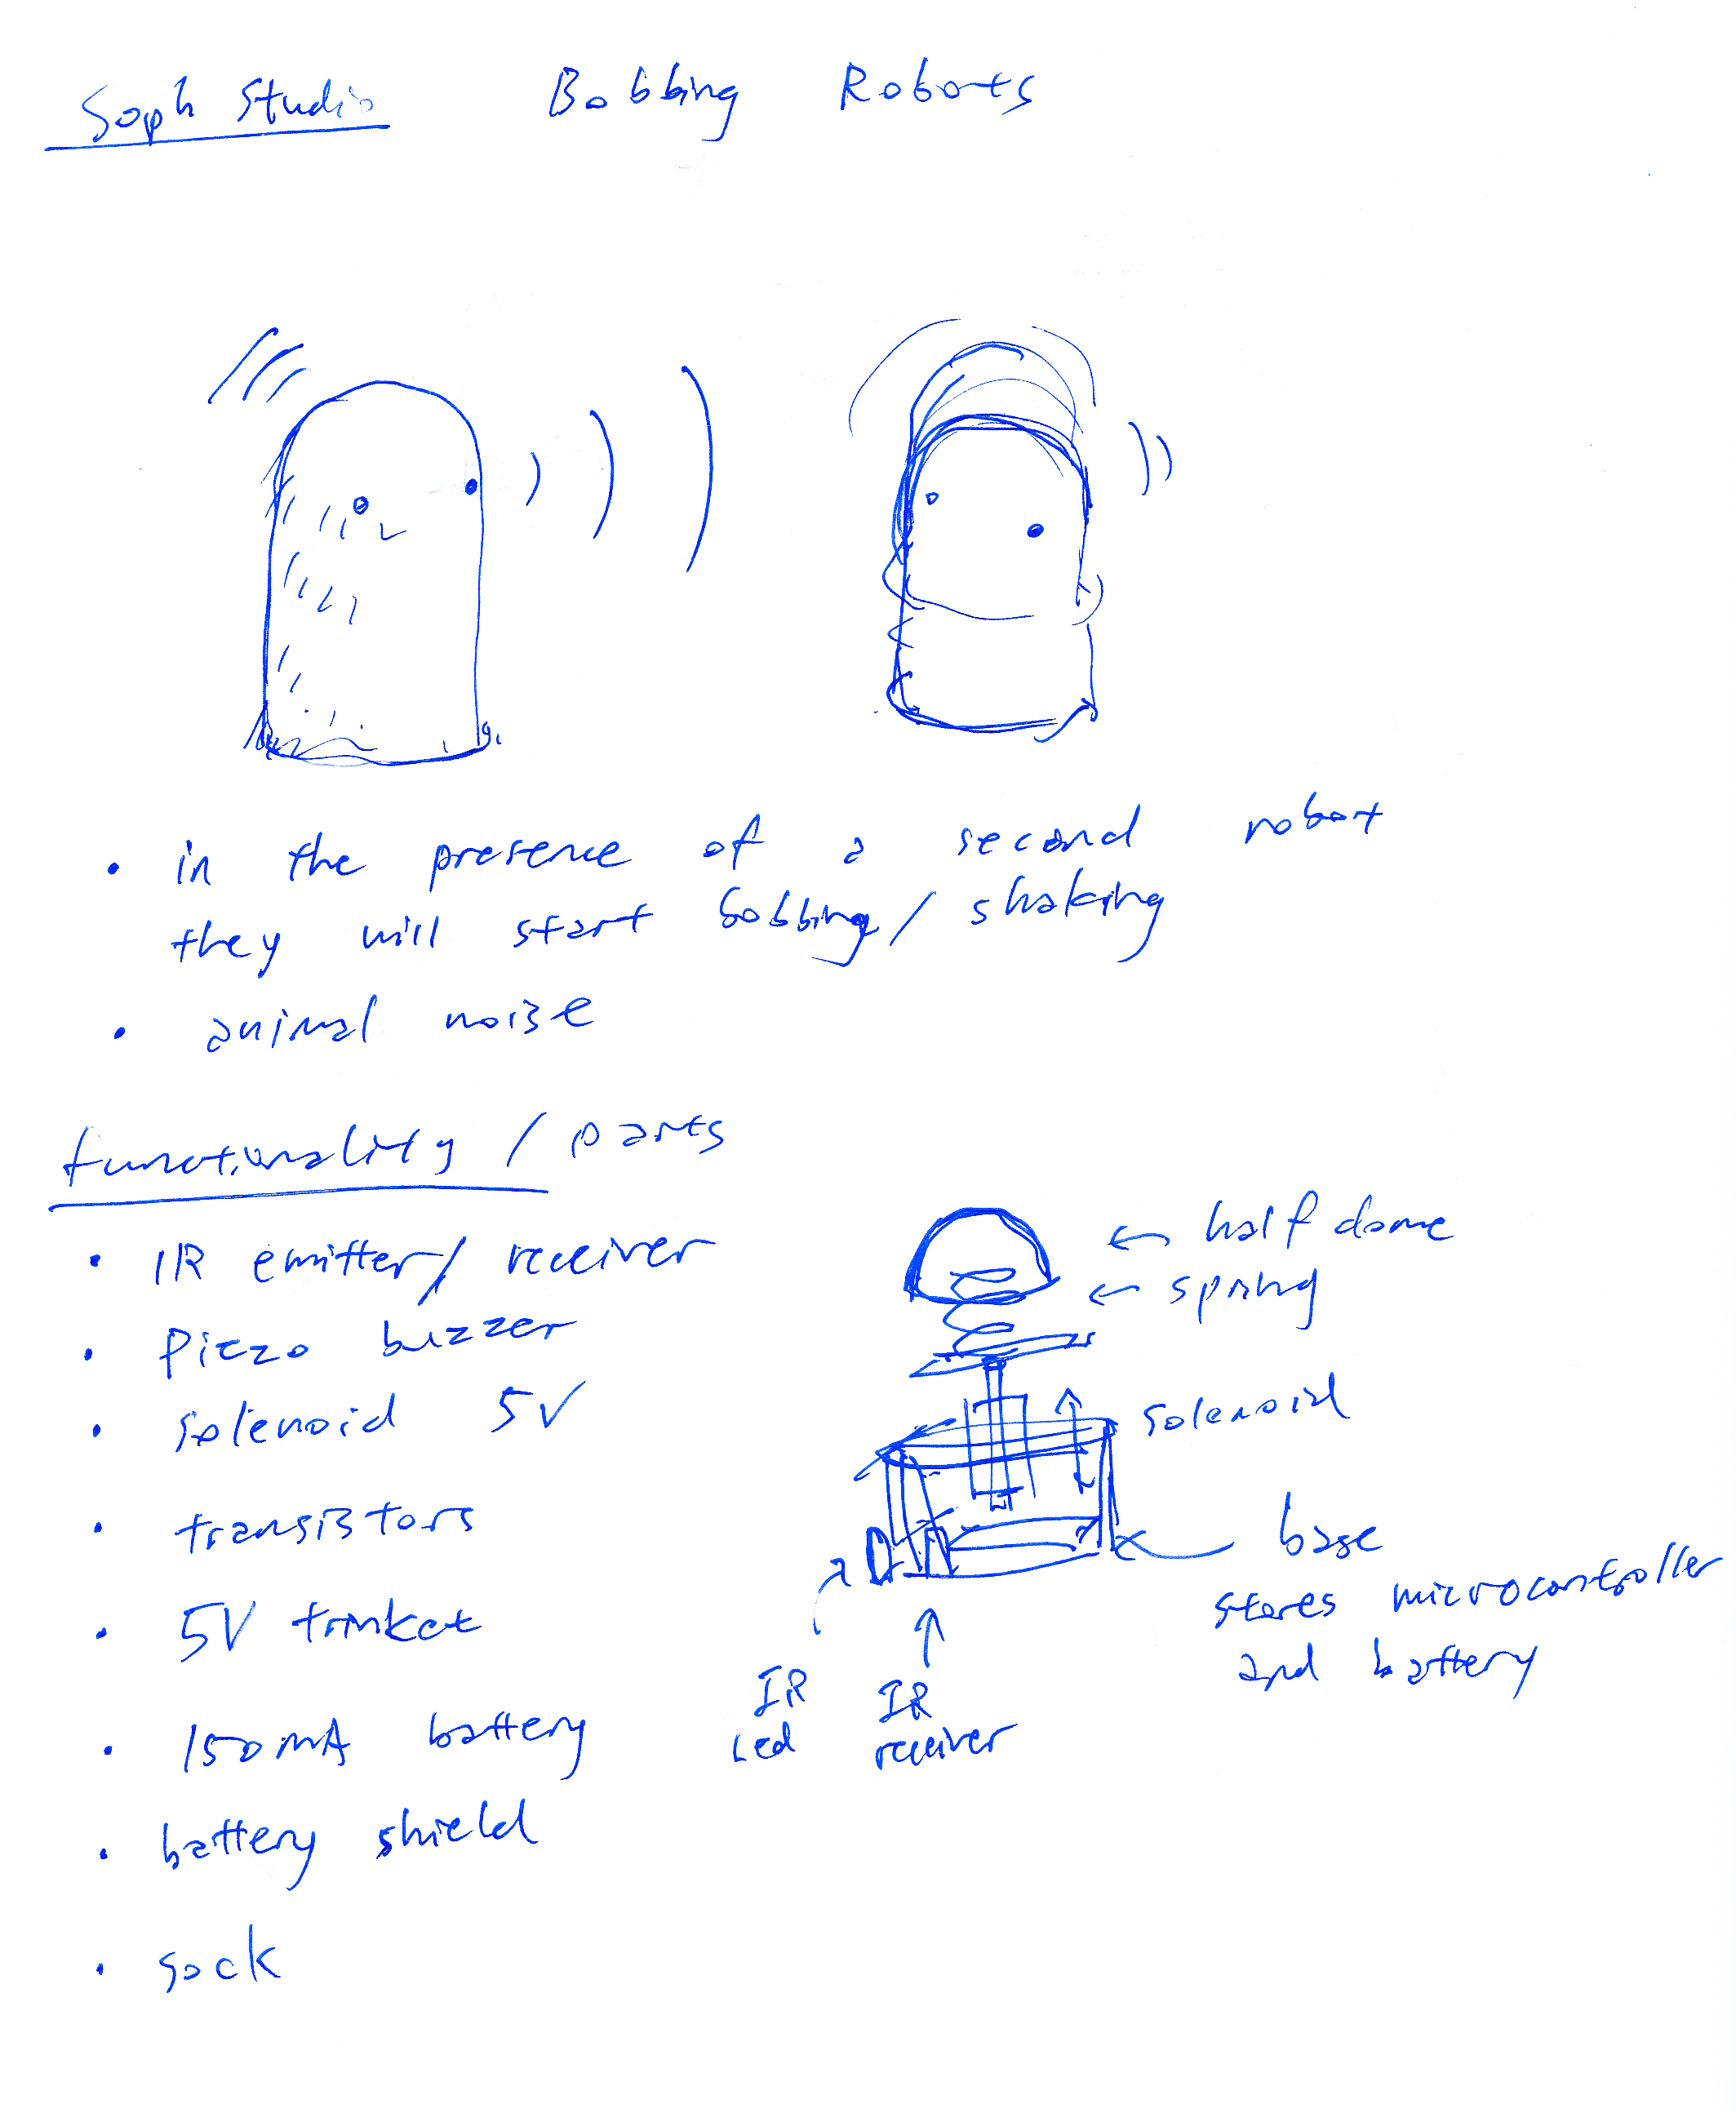 Soph Studio Bobbing Robots
• in the presence of a second robot
they will start bobbing/shaking
• animal noise
functionality / parts
• IR emitter/receiver
• Piezo buzzer
• solenoid 5V
• transistors
• 5V trinket
• 150mA battery
• battery shield
• sock
← half dome
← spring
solenoid
base
stores microcontroller
and battery
IR
Led
IR
receiver